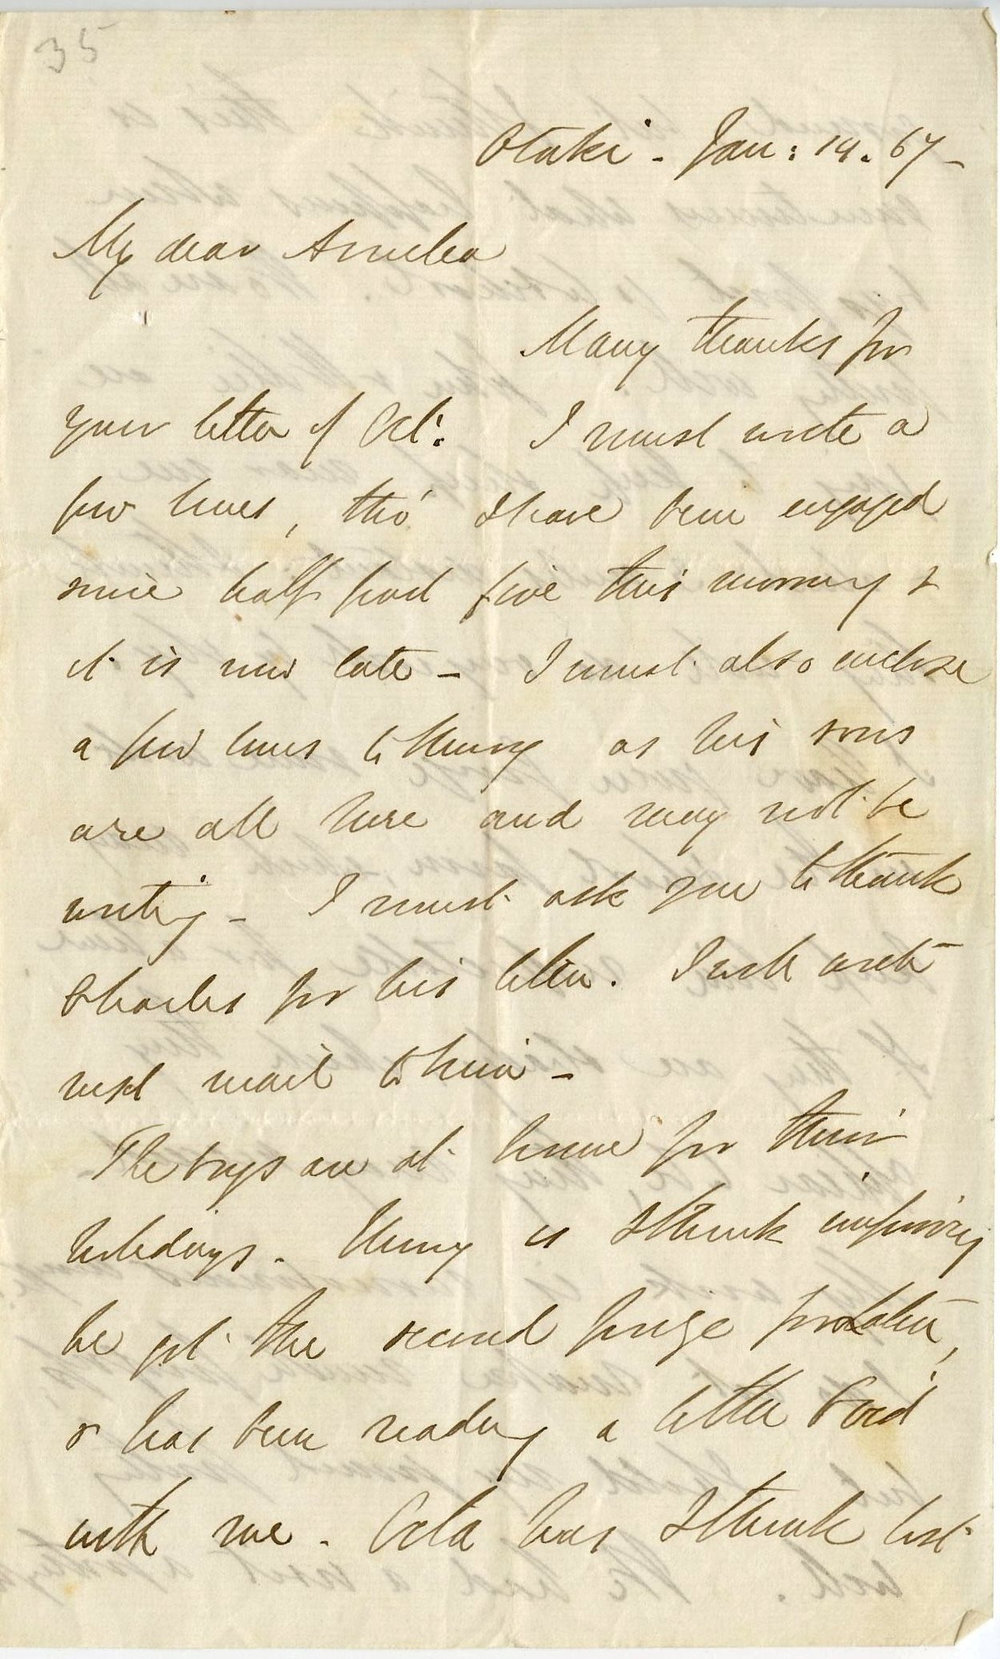 35
Otaki - Jan: 14. 67 -
My dear Amelia
Many thanks for
your letter of Oct: I must write a
few lines, tho' I have been engaged
since half past five this morning &
it is now late - I must also enclose
a few lines to Henry as his sons
are all here and may not be
writing - I must ask you to thank
Charles for his letter. I will write
next mail to him -
The boys are at home for their
holidays. Henry is I think improving
he got the second prize for Latin,
& has been reading a little Ovid
with me. Octa has I think lost